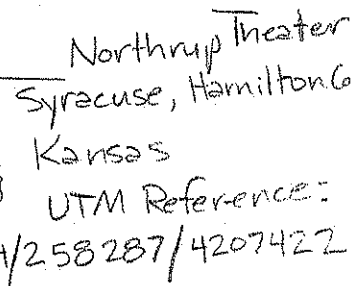 Northrup Theater
Syracuse, Hamilton Co
Kansas
UTM Reference:
/258287/4207422